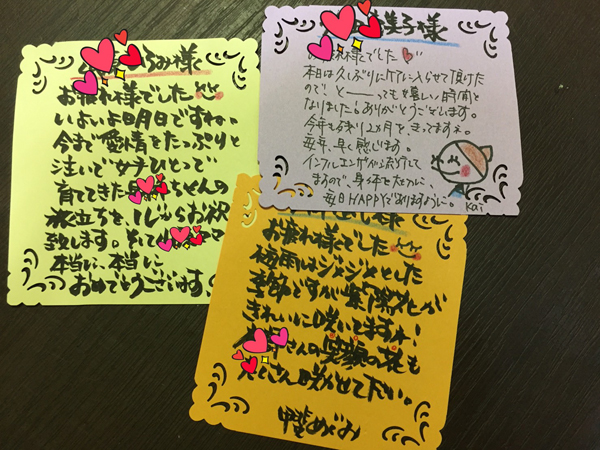 ろみ様
お疲れ様でした
いよいよ明日ですね、
今まで愛情をたっぷりと
注いで女手ひとつで
育ててきた ちゃんの
旅立ちを、心からお祝い
致します。そして
本当に、本当に
おめでとうございます
美子様
お疲れ様でした
本日は久しぶりに に入らせて頂けた
ので、と――っても嬉しい時間と
なりました。ありがとうございます。
今年も残り2ヵ月を きってます。
毎年、早く感じます。
インフルエンザが流行して
ますので、身体を大切に、
毎日HAPPYでありますように。
Kai
様
お疲れ様でした
梅雨はジメジメとした
季節ですが紫陽花が
きれいに咲いてますね、
さんの笑顔の花も
たくさん咲かせて下さい。
めぐみ